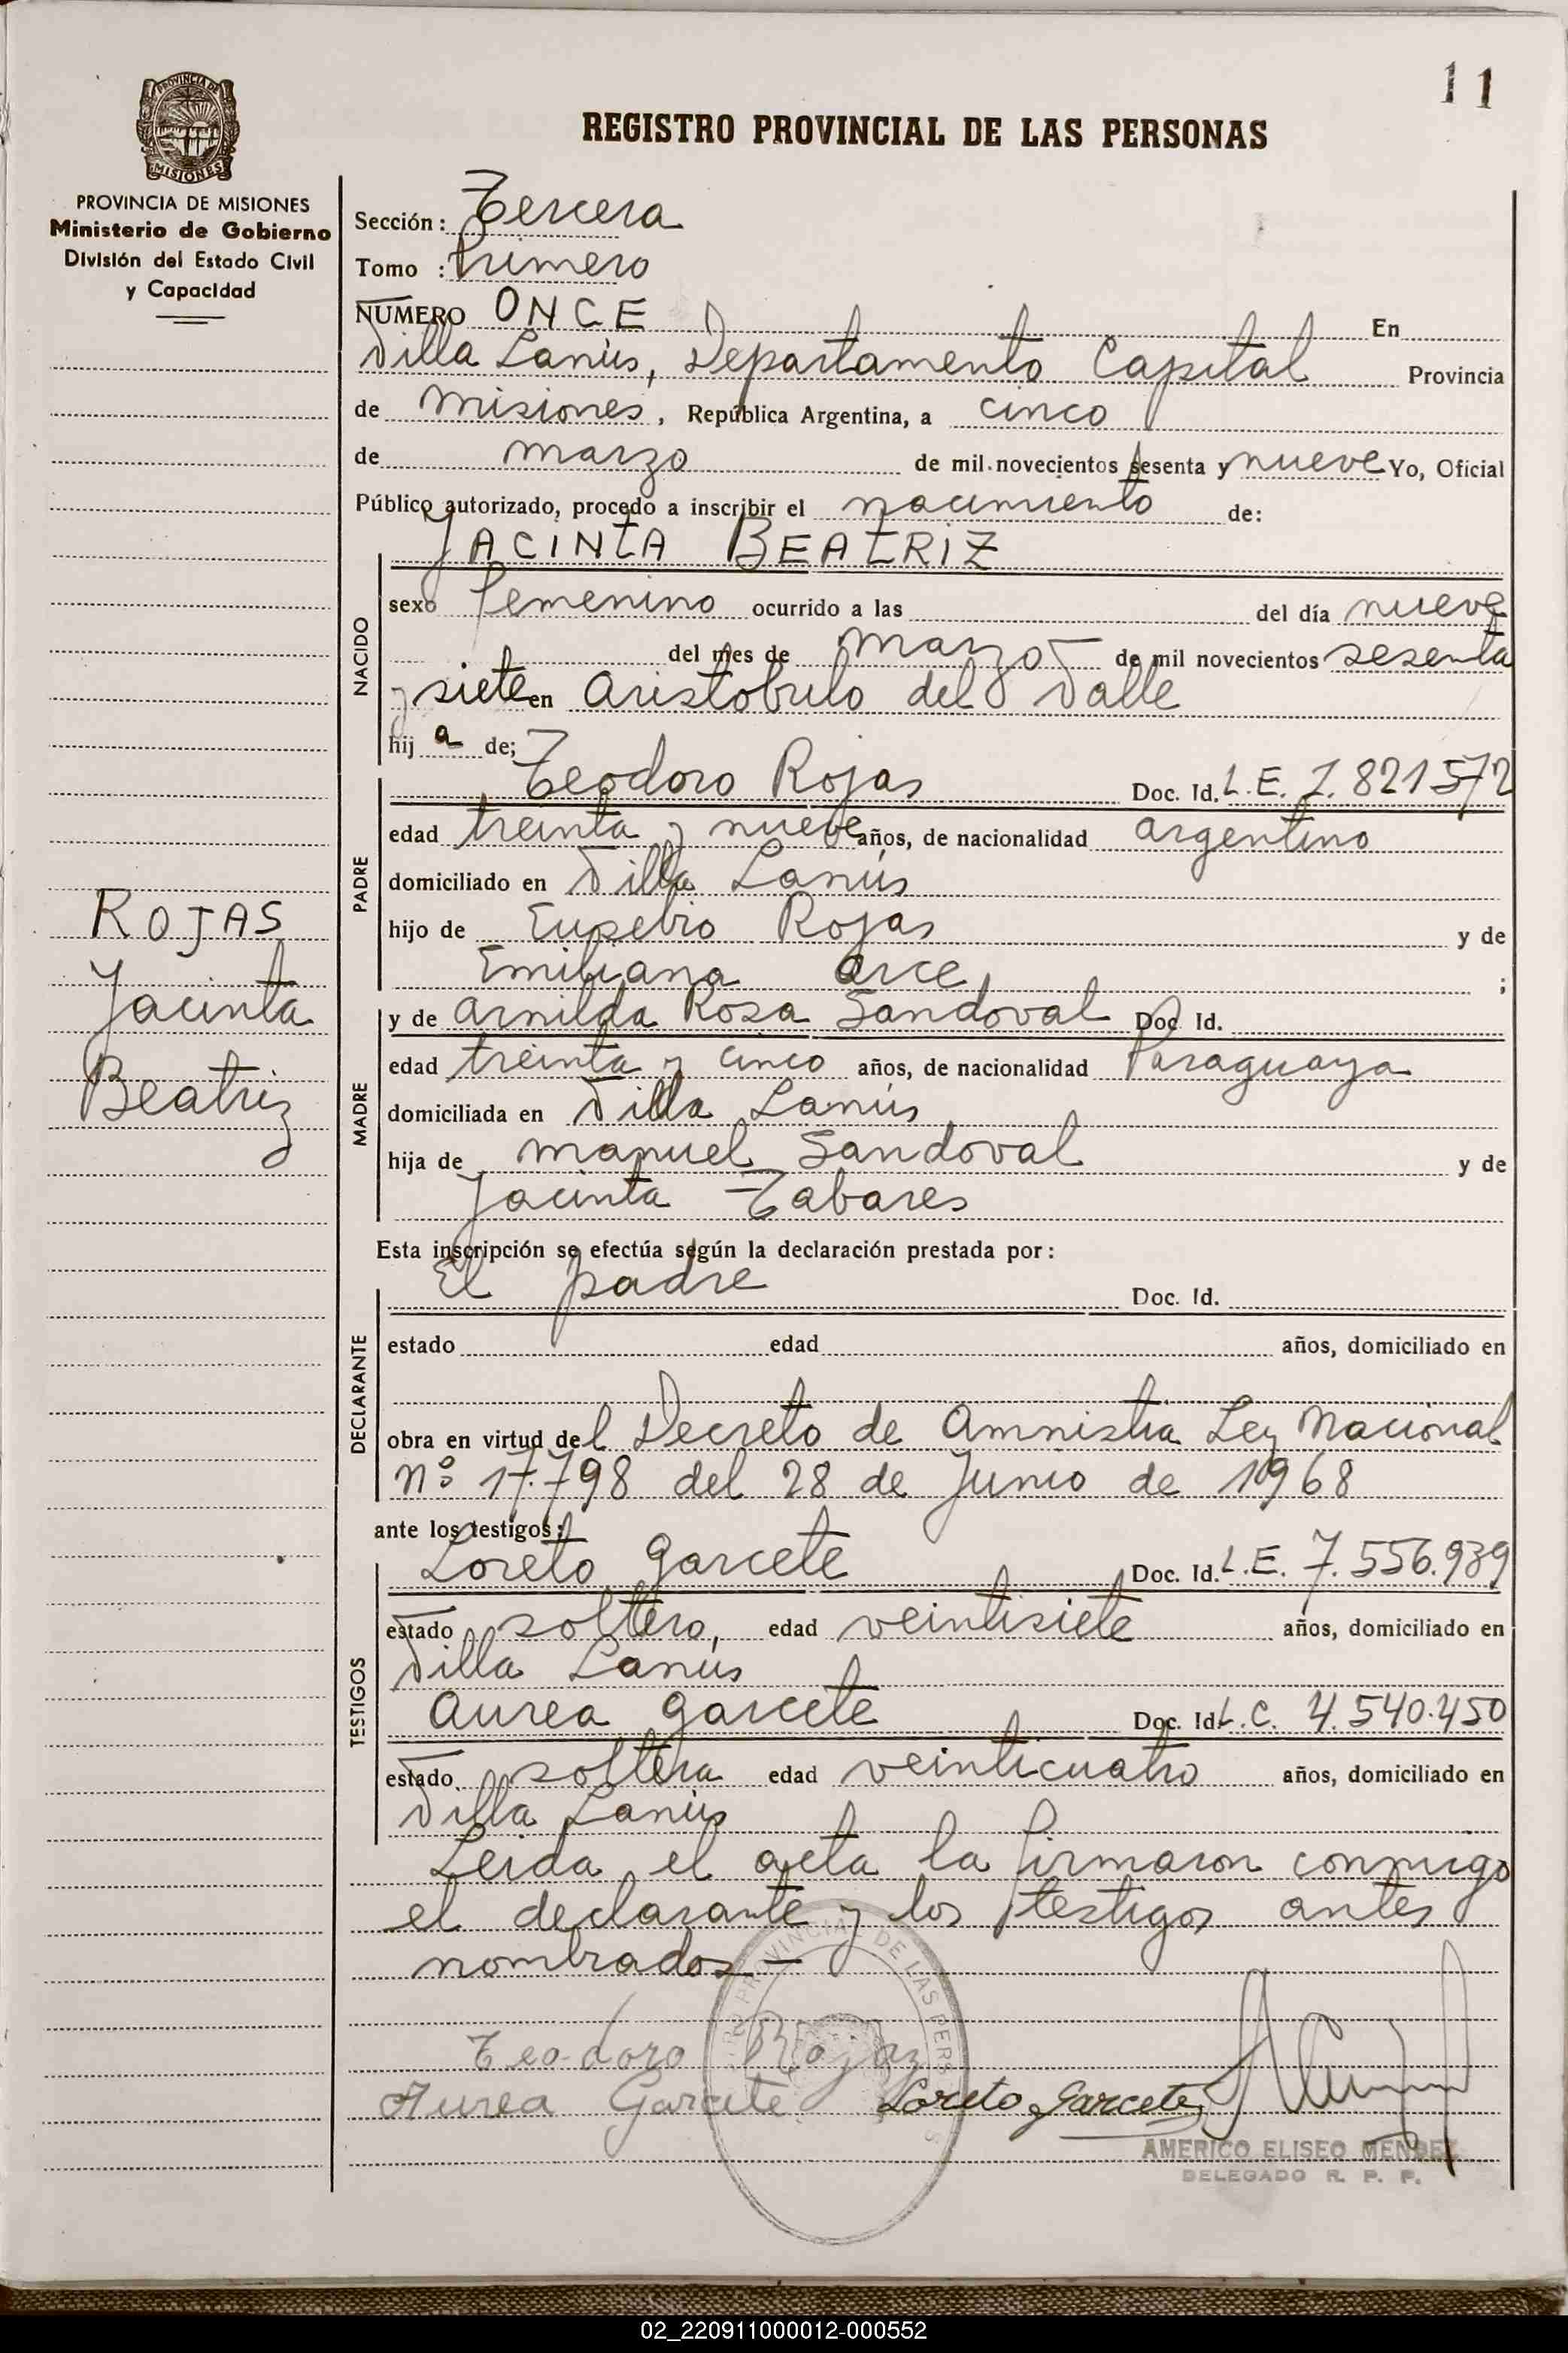 11
REGISTRO PROVINCIAL DE LAS PERSONAS
PROVINCIA DE MISIONES
MISIONES
PROVINCIA DE MISIONES
Ministerio de Gobierno
División del Estado Civil
y Capacidad
ROJAS
Jacinta
Beatriz
Sección: Tercera
Tomo : Primero
NUMERO ONCE En
Villa Lanús, Departamento Capital Provincia
de Misiones, República Argentina, a cinco
de marzo de mil novecientos sesenta y nueve Yo, Oficial
Público autorizado, procedo a inscribir el nacimiento de:
JACINTA BEATRIZ
NACIDO
sexo femenino ocurrido a las del día nueve
del mes de marzo de mil novecientos sesenta
y siete en Aristobulo del Valle
hij a de;
PADRE
Teodoro Rojas Doc. Id. L.E. 7.821572
edad treinta y nueve años, de nacionalidad argentino
domiciliado en Villa Lanús
hijo de Eusebio Rojas y de
Emiliana Arce ;
MADRE
y de Arnilda Rosa Sandoval Doc. Id.
edad treinta y cinco años, de nacionalidad Paraguaya
domiciliada en Villa Lanús
hija de Manuel Sandoval y de
Jacinta Tabares
Esta inscripción se efectúa según la declaración prestada por:
DECLARANTE
El padre Doc. Id.
estado edad años, domiciliado en
obra en virtud del Decreto de Amnistia Ley Nacional
Nº 17.798 del 28 de Junio de 1968
ante los testigos:
TESTIGOS
Loreto Garcete Doc. Id. L.E. 7.556.939
estado soltero, edad veintisiete años, domiciliado en
Villa Lanús
Aurea Garcete Doc. Id. L.C. 4.540.450
estado soltera edad veinticuatro años, domiciliado en
Villa Lanús
Leida el acta la firmaron conmigo
el declarante y los testigos antes
nombrados—
Teodoro Rojaz
Aurea Garcete Loreto Garcete
AMERICO ELISEO MENDEZ
DELEGADO R. P. P.
02_220911000012-000552